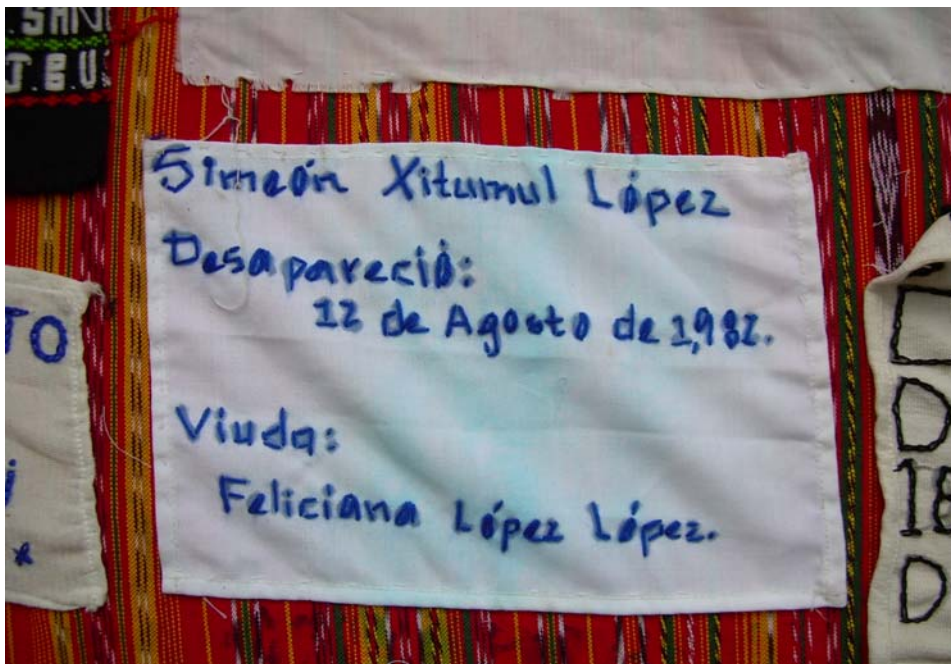 Simeón Xitumul López
Desapareció:
12 de Agosto de 1,982.
Viuda:
Feliciana López López.